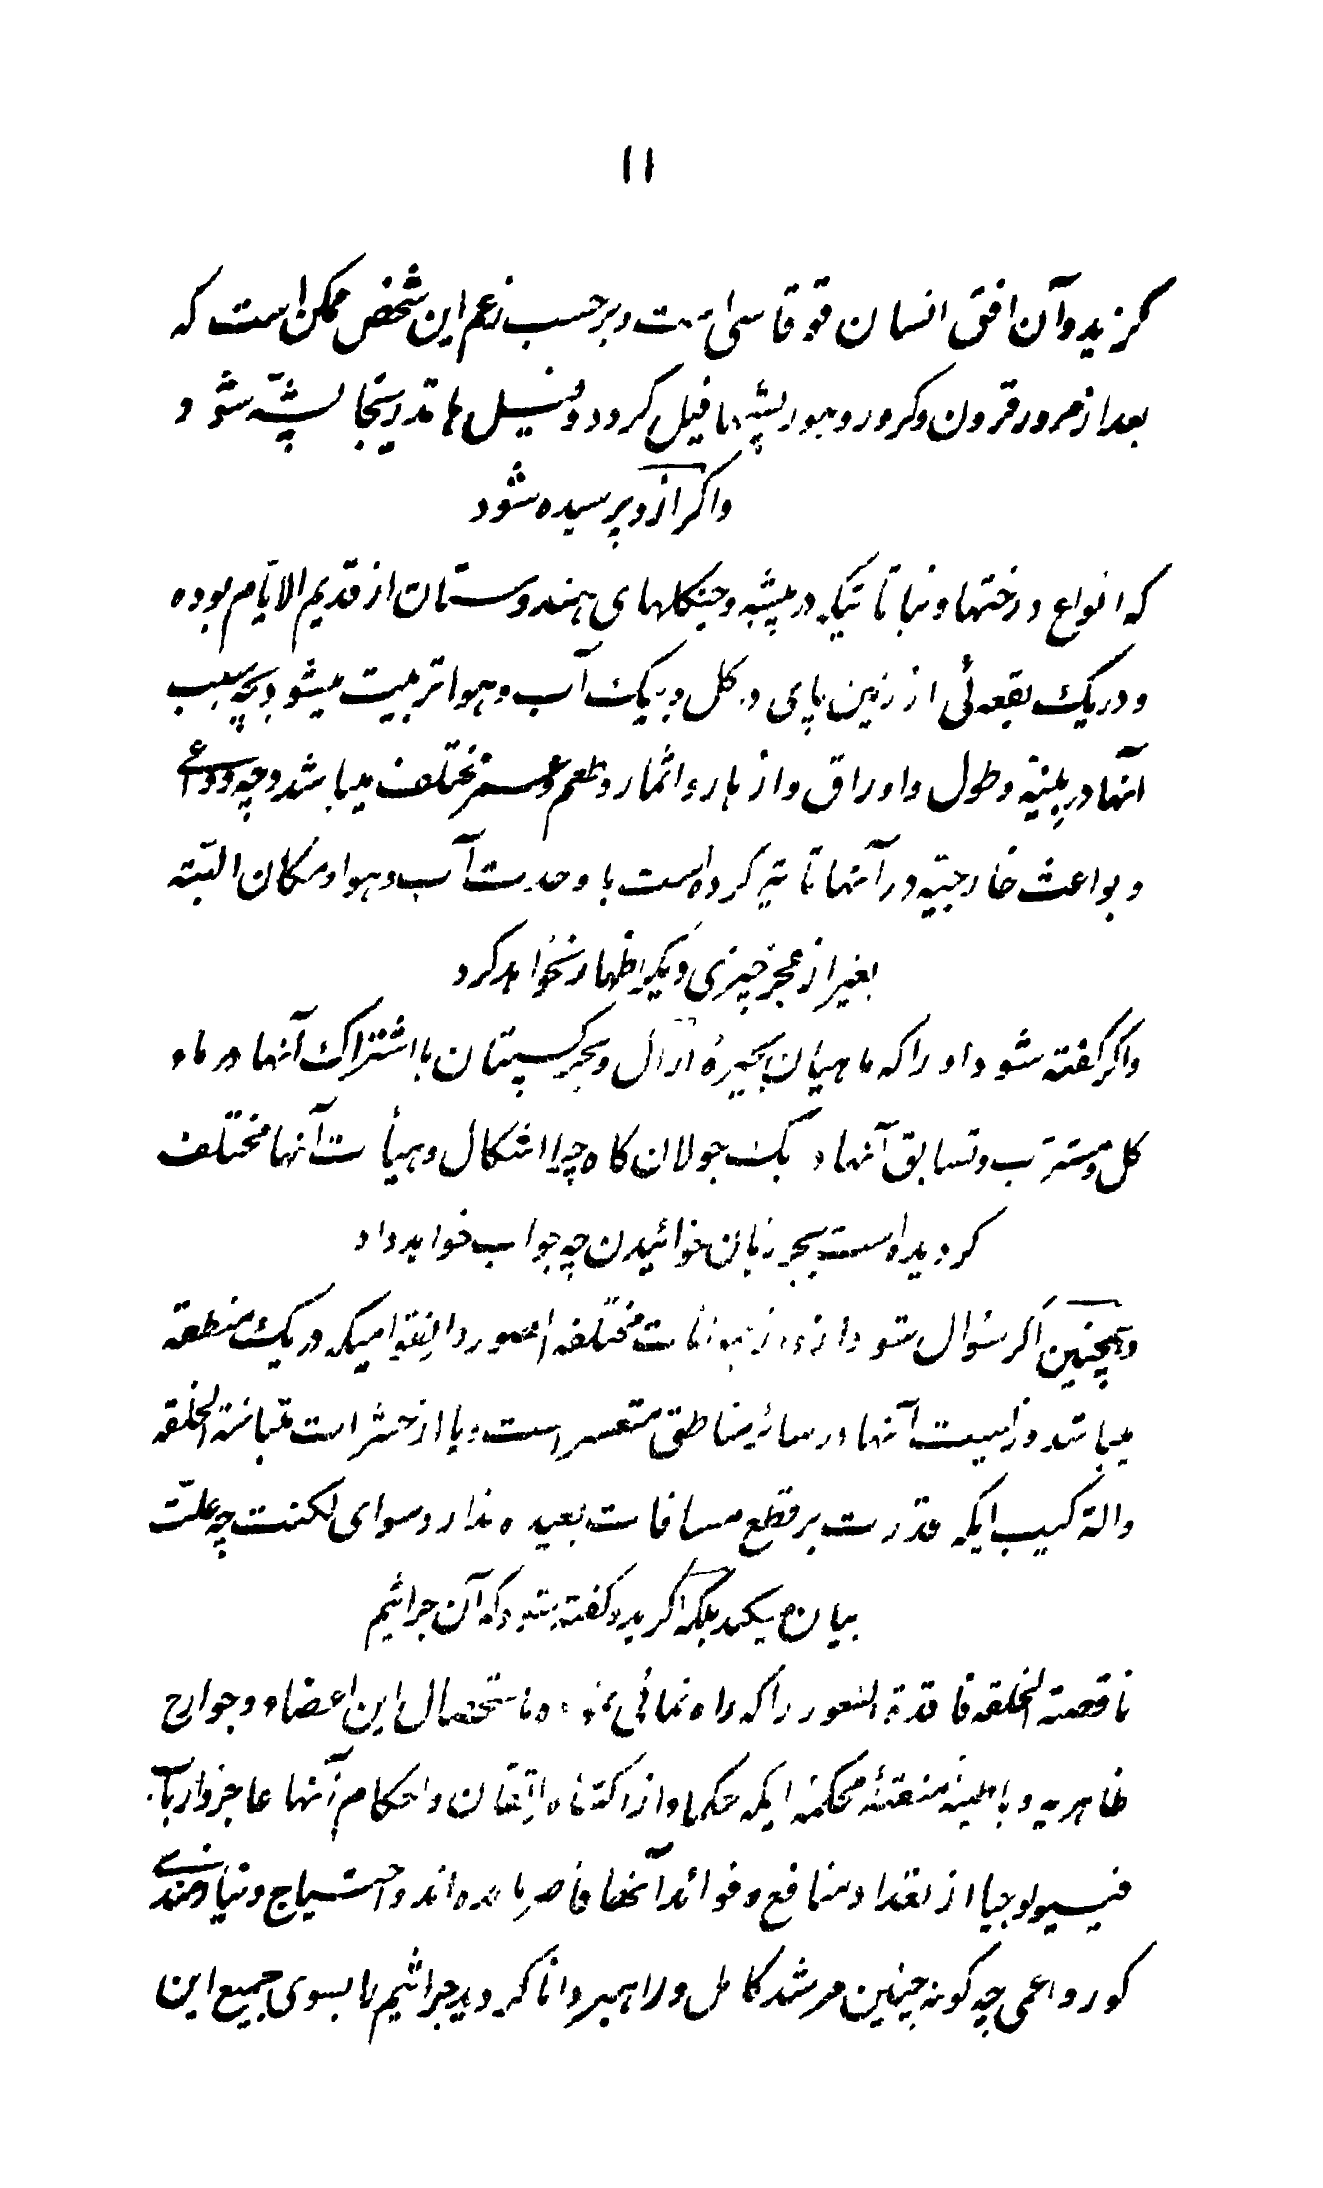 ۱۱
گزیده و آن افق انسان قوقاسی است و بر حسب زعم این شخص ممکن است که
بعد از مرور قرون و کرور دهور پشهها فیل گردد و فیل ها تدریجا پشّه شود و
و اگر ازو پرسیده شود
که انواع درختها و نباتاتیکه در بیشه و جنگلهای هندوستان از قدیم الایّام بوده
و در یک بقعه ئی از زمین پای در گل و بیک آب و هوا تربیت میشود بچه سبب
آنها در بنیّه و طول و اوراق و ازهار و اثمار و طعم و عمر مختلف میباشد و چه دواعی
و بواعث خارجیّه در آنها تاثیر کرده است با وحدت آب و هوا و مکان البتّه
بغیر از عجز چیزی دیگر اظهار نخواهد کرد
و اگر گفته شود او را که ماهیان بحیرهٔ ارال و بحر کسپتان با اشتراک آنها در ماء
کل و مشرب و تسابق آنها در یک جولان کاه چرا اشکال و هیأت آنها مختلف
کردیده است بجز زبان خوائیدن چه جواب خواهد داد
و همچنین اگر سؤال شود از و از حیوانات مختلفه الصور و القوا میکه در یک منطقه
میباشد و زیست آنها در سائر مناطق متعسر است و یا از حشرات متباینة الخلقه
والترکیب ایکه قدرت بر قطع مسافات بعیده ندارد سوای لکنت چه علّت
بیان میکند بلکه اگر بدو گفته شود که آن جراثیم
ناقصة الخلقه فاقدة الشعور را که راه نمائی نموده باستحصال این اعضاء و جوارح
ظاهریه و باطنیهٔ متقنهٔ محکمه ایکه حکما و از اکتناه اتقان و احکام آنها عاجز و ارباب
فیسیولوجیا از تعداد منافع و فوائد آنها قاصر مانده اند و احتیاج و نیازمندی
کور و اعمی چه گونه چنین مرشد کامل و راهبر دانا گردید جراثیم را بسوی جمیع این